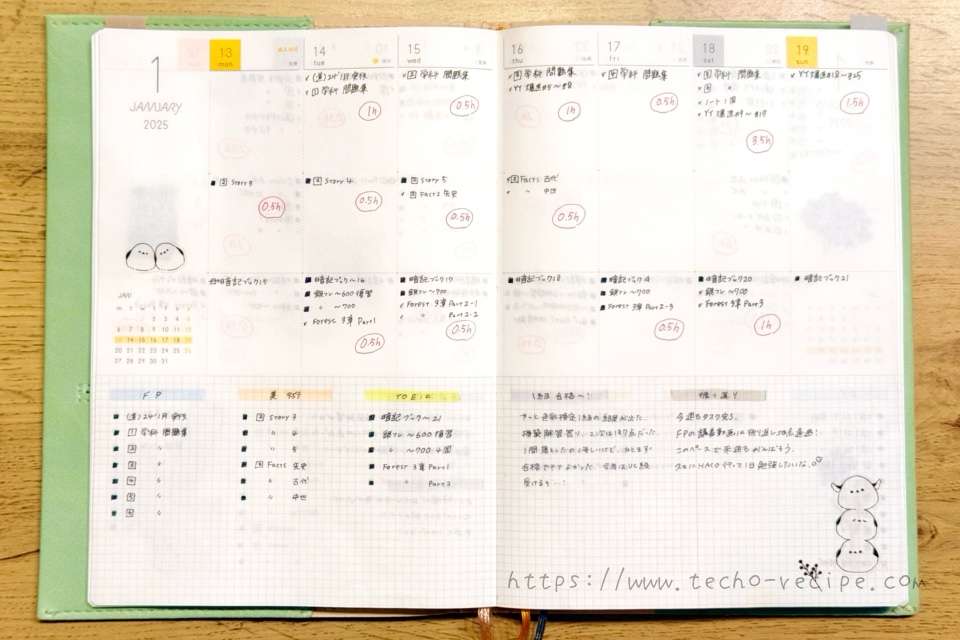 1
JANUARY
2025
13
mon
14
tue
(直)24'1月実技
1 学科 問題集
1h
15
wed
2 学科 問題集
0.5h
16
thu
3 学科 問題集
1h
17
fri
学科 問題集
0.5h
18
sat
学科 問題集
ノート1冊
3.5h
19
sun
1.5h
2 Story 3
0.5h
Story 4
0.5h
Story 5
Facts 先史
0.5h
Facts 古代
〃 中世
0.5h
暗記ブック15
暗記ブック〜16
銀フレ〜600 復習
〃 〜700
Forest 3章 Part1
0.5h
暗記ブック17
銀フレ〜700
Forest 3章 Part2-1
〃 Part2-2
0.5h
暗記ブック18
暗記ブック19
銀フレ〜700
Forest 3章 Part2-3
0.5h
暗記ブック20
銀フレ〜700
Forest 3章 Part3
1h
暗記ブック21
JAN
M T W T F S S
1 2 3 4 5
6 7 8 9 10 11 12
13 14 15 16 17 18 19
20 21 22 23 24 25 26
27 28 29 30 31
FP
(直)24'1月 実技
1 学科 問題集
2 〃
3 〃
4 〃
5 〃
6 〃
Story 3
〃 4
〃 5
Facts 先史
〃 古代
〃 中世
TOEIC
暗記ブック〜21
銀フレ〜600 復習
〃 〜700 4周
Forest 3章 Part1
〃 Part2
1級 合格〜!
やっと色彩検定1級の結果が出た。
1問落としたのは悔しいけど、ひとまず
合格できてよかった。今年はUC級
受けるぞ〜!
振り返り
今週もタスク完了。
FPの講義動画は折り返し地点通過!
このペースで来週もがんばろう。
久々にHACO行って1日勉強したいな。
https://www.techo-recipe.com